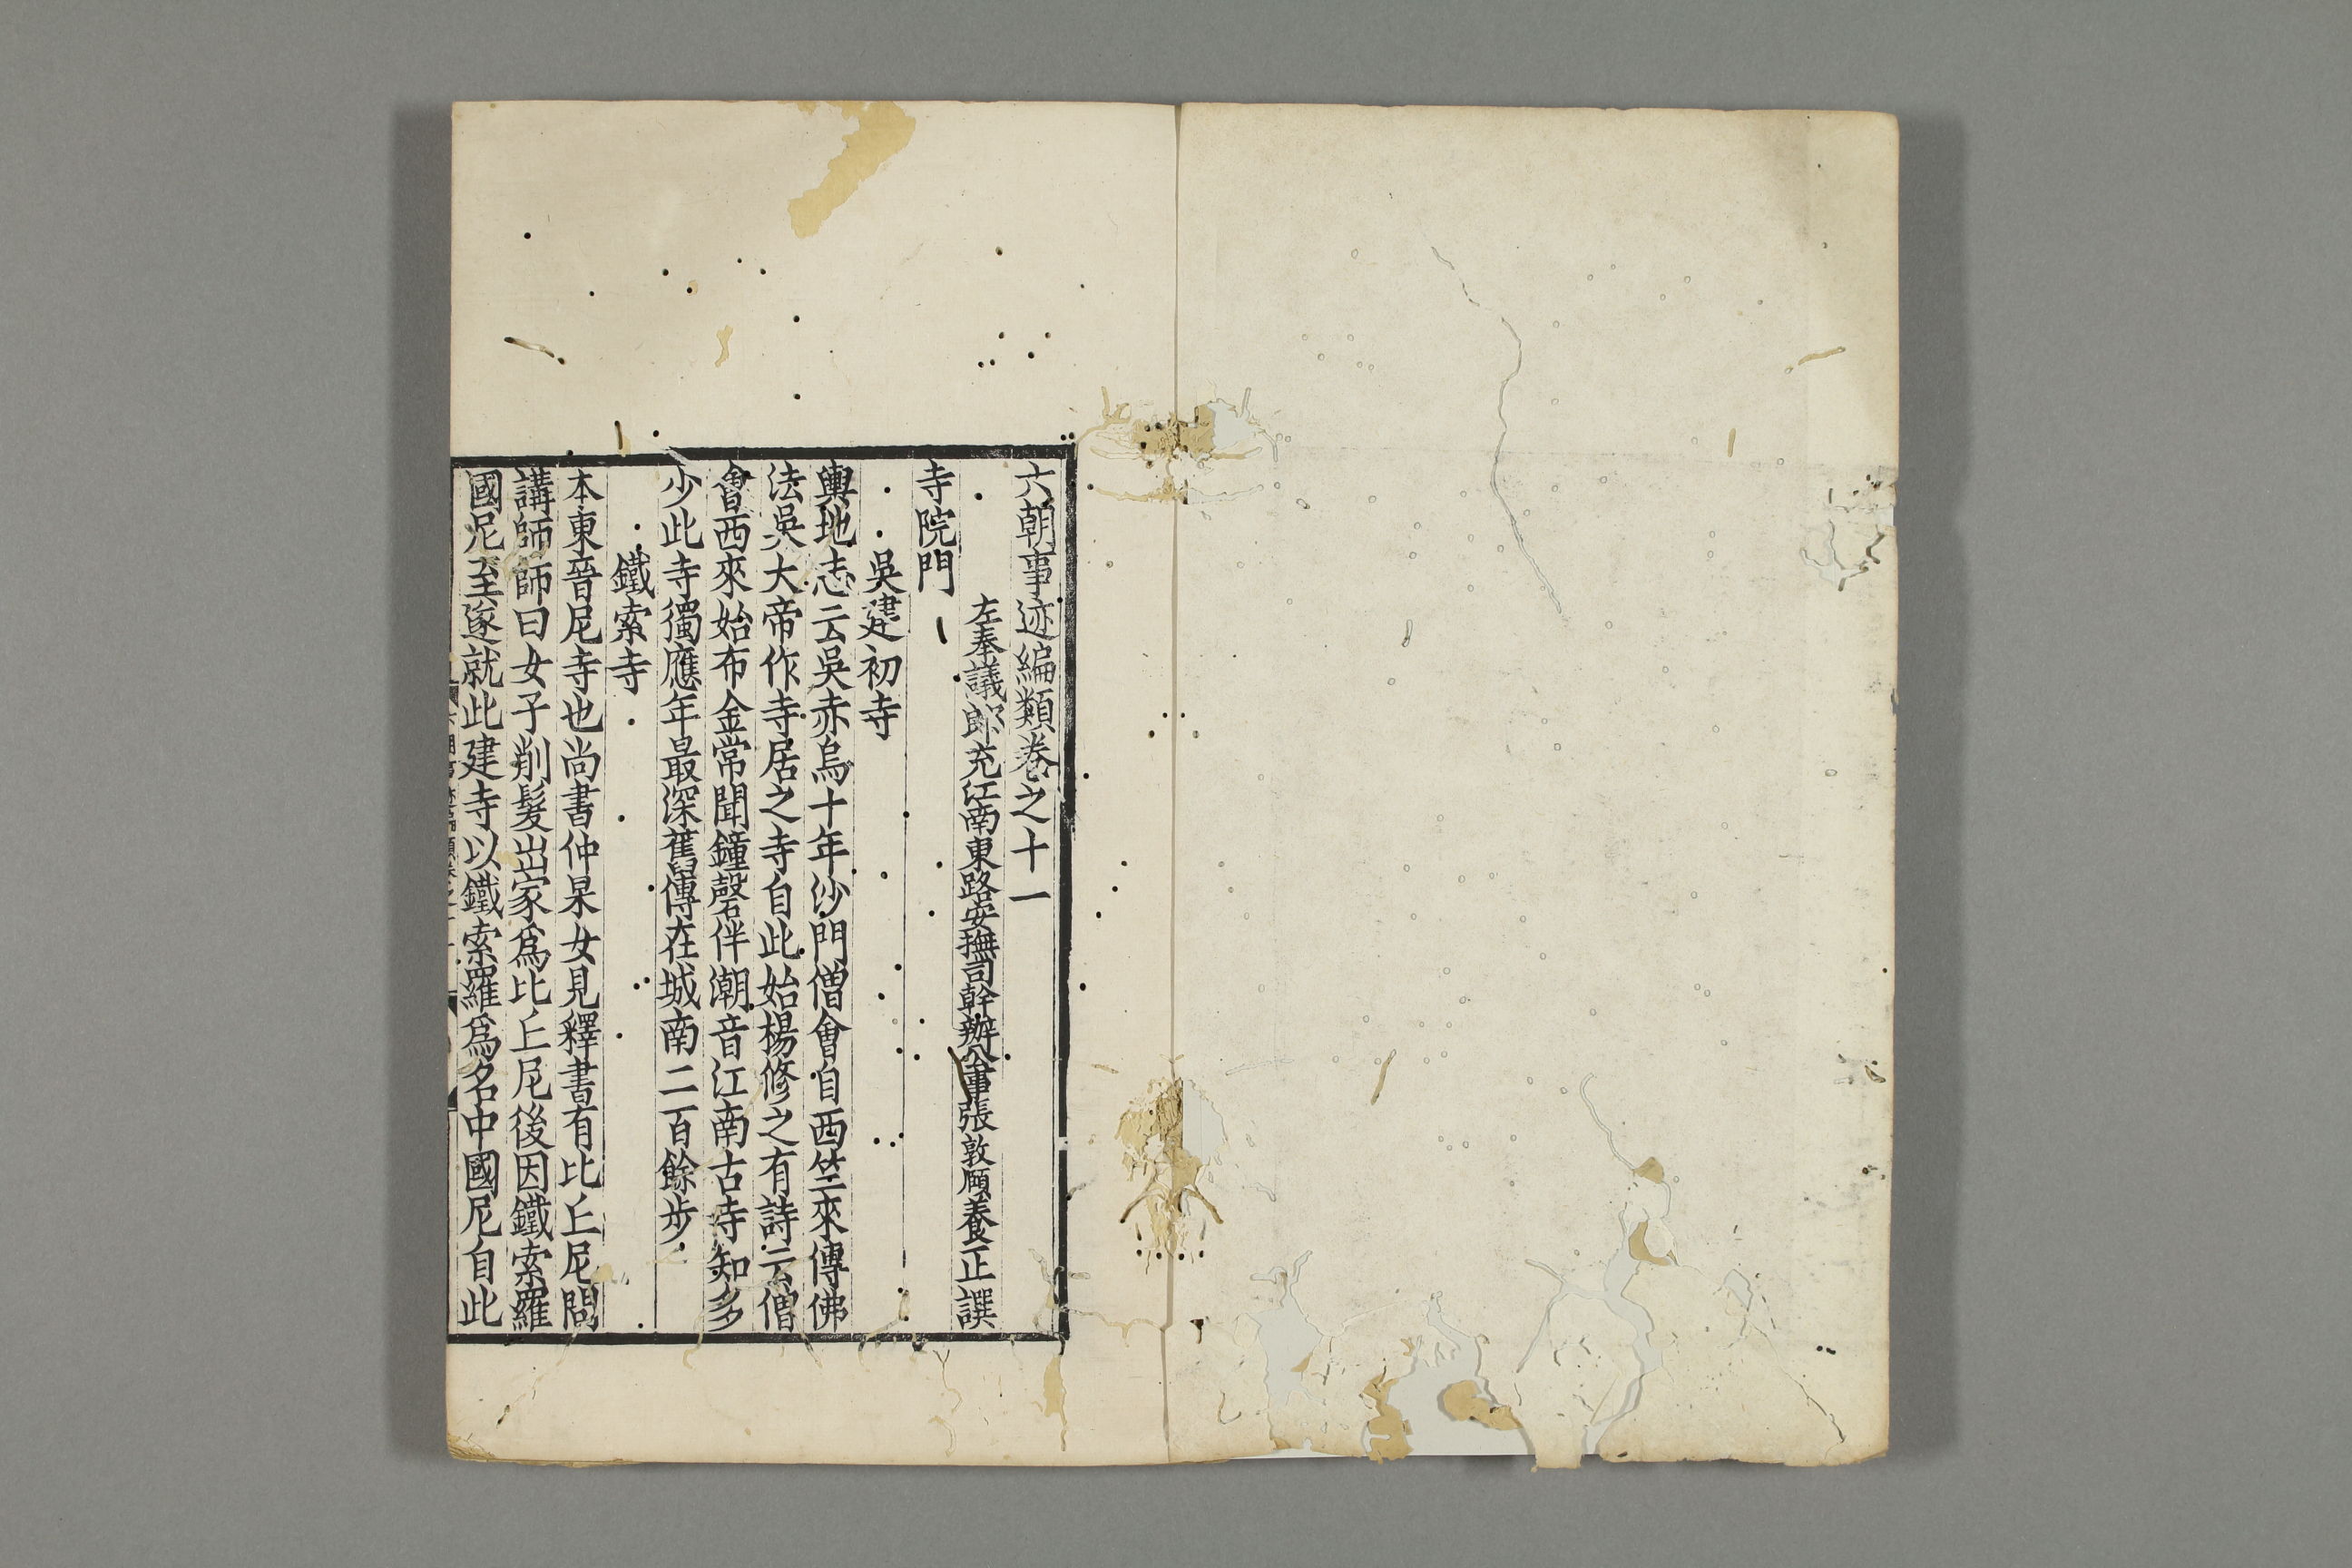 六朝事迹編類卷之十一
左奉議郎充江南東路安撫司幹辦公事張敦頤養正譔
寺院門
吳建初寺
輿地志云吳赤烏十年沙門僧會自西竺來傳佛
法吳大帝作寺居之寺自此始楊修之有詩云僧
會西來始布金常聞鐘磬伴潮音江南古寺知多
少此寺獨應年最深舊傳在城南二百餘步
鐵索寺
本東晉尼寺也尚書仲杲女見釋書有比丘尼問
講師師曰女子削髮出家爲比丘尼後因鐵索羅
國尼至遂就此建寺以鐵索羅爲名中國尼自此